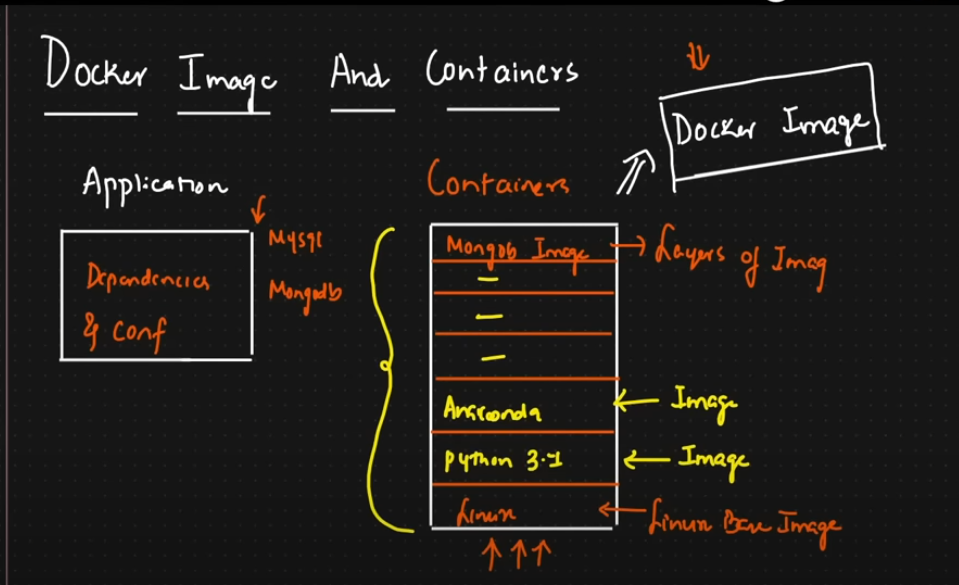 Docker Image And Containers
Docker Image
Application
Dependencies
& Conf
Mysql
Mongodb
Containers
Mongodb Image
Layers of Imag
Anaconda
Image
Python 3.1
Image
Linux
Linux Base Image